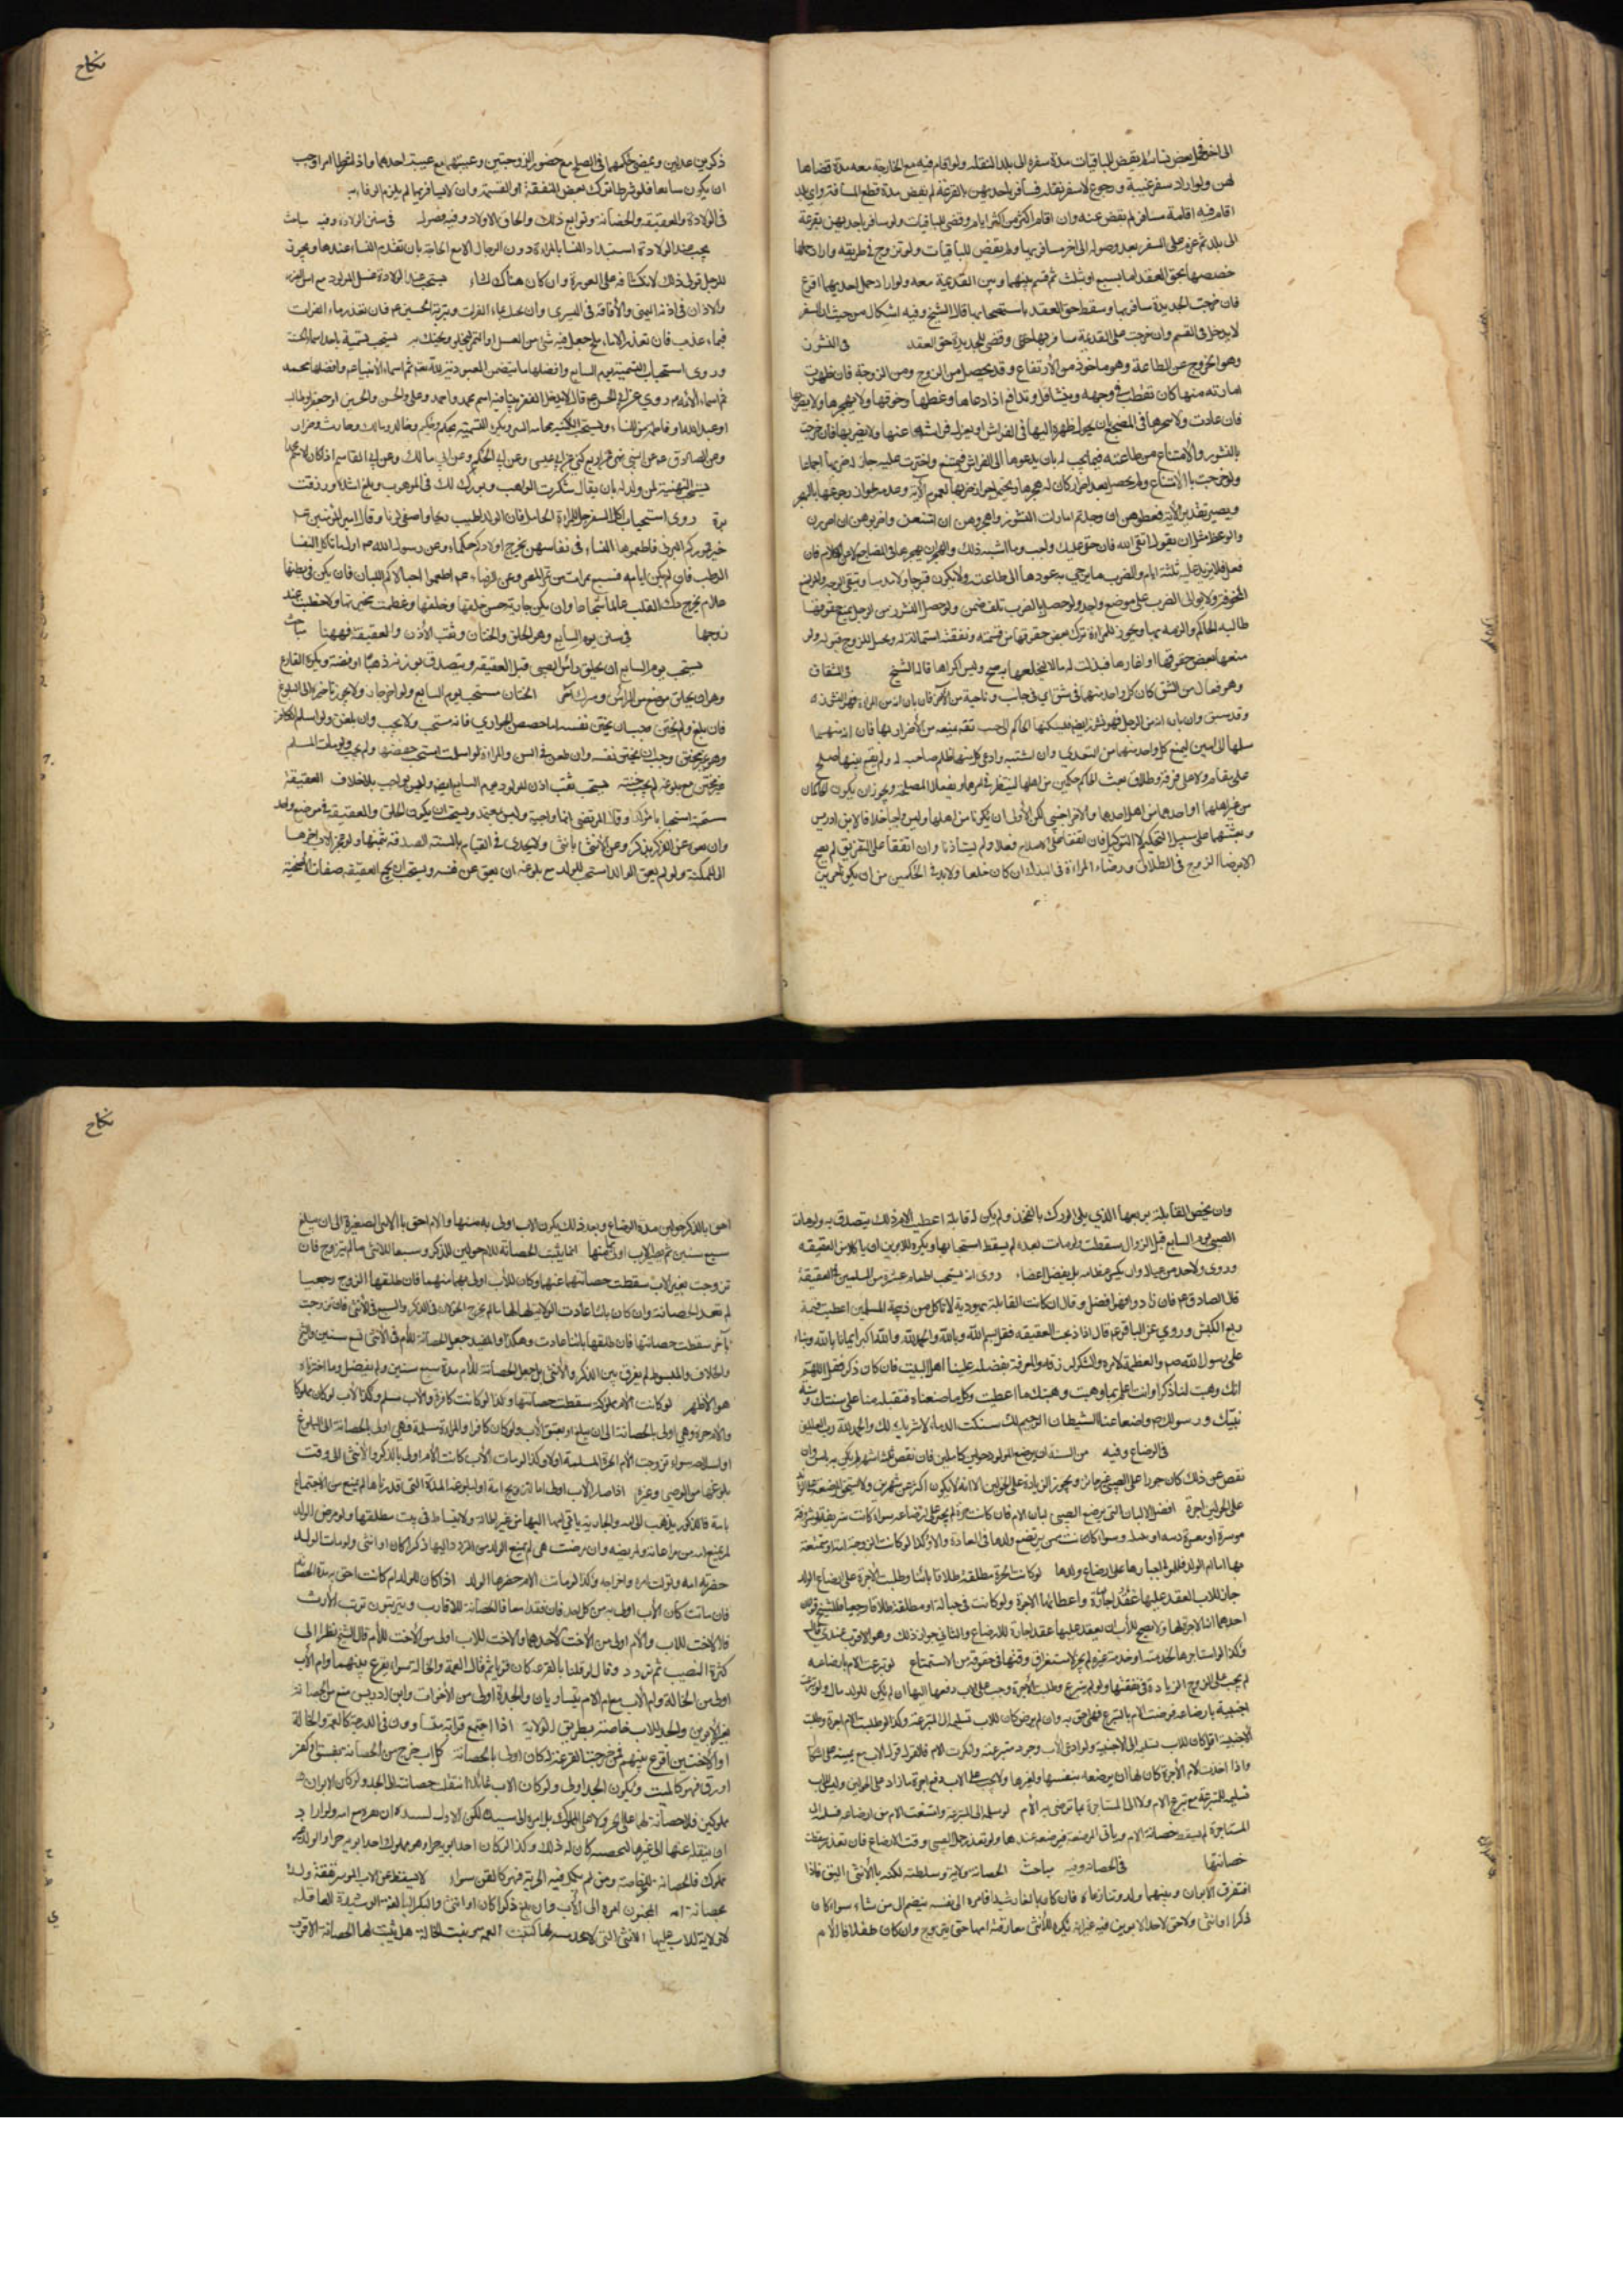 الى اخر فحمل بعض نسائه لم يقض للباقيات مدة سفره الى بلد النقله ولو اقام فيه مع الخارجة معه مدة قضاها
لهن ولو اراد سفر غيبة ورجوع لا سفر نقلة فسافر باحديهن بالقرعة لم يقض مدة قطع المسافة واي بلد
اقام فيه اقامة مسافر لم يقض عنه وان اقام اكثر من عشرة ايام قضى للباقيات ولو سافر باحديهن بقرعة
الى بلد ثم عزم على السفر بعد وصوله الى اخر سافر بها ولم يقض للباقيات ولو تزوج في طريقه واراد حملها
خصصها بحق العقد اما بسبع او ثلث ثم قسم بينهما وبين القديمة معه ولو اراد حمل احديهما اقرع
فان خرجت الجديدة سافر بها وسقط حق العقد باستصحابها قال الشيخ وفيه اشكال من حيث ان السفر
لا يدخل في القسم وان خرجت على القديمة سافر بها وقضى للجديدة حق العقد في النشوز
وهو الخروج عن الطاعة وهو ماخوذ من الارتفاع وقد يحصل من الزوج ومن الزوجة فان ظهرت
امارته منها كان تقطب في وجهه ويتثاقل وتدافع اذا دعاها وعظها وخوفها ولا يهجرها ولا يضربها
فان عادت والا هجرها في المضجع بان يحول ظهره اليها في الفراش او يعزل فراشه عنها ولا يضربها فان خرجت
بالنشوز والامتناع من طاعته فيما يجب له بان يدعوها الى الفراش فتمتنع جاز له ضربها اجماعا
ولو خرجت بالامتناع ولم يحصل بعد اصرار كان له هجرها
ويصير تقدير الاية فعظوهن ان وجدتم امارات النشوز واهجروهن ان امتنعن واضربوهن ان اصررن
والوعظ مثل ان يقول اتقي الله فان حقي عليك واجب وما اشبه ذلك والهجران يهجرها في المضاجع لا في الكلام فان
فعل فلا يزيد على ثلثة ايام والضرب ما يرجى به عودها الى طاعته ولا يكون مبرحا ولا مدميا ويتقي الوجه والمواضع
المخوفة ولا يوالى الضرب على موضع واحد ولو حصل بالضرب تلف ضمن ولو حصل النشوز من الرجل بمنع حقوقها
طالبه الحاكم والزمه بها ويجوز للمراة ترك بعض حقوقها من قسمة ونفقة استمالة له ويحل للزوج قبوله ولو
منعها بعض حقوقها او اغارها فبذلت له مالا ليخلعها به صح وليس اكراها قاله الشيخ في الشقاق
وهو فعال من الشق كان كل واحد منهما في شق اي في جانب وناحية من الاخر فان بان انه من المراة فهو النشوز
وقد سبق وان بان انه من الرجل فهو نشوز ايضا فيسكنها الحاكم الى جنب ثقة يمنعه من الاضرار بها
ليمنع كل واحد منهما من التعدي وان اشتبه وادعى كل منهما ظلم صاحبه له ولم يقع بينهما صلح
على مقام ولا على فرقة وطلاق بعث الحاكم حكمين من اهلهما لينظر في امرهما ويفعلا المصلحة ويجوز ان يكون الحكمان
من غير اهلهما او احدهما من اهل احدهما والاخر اجنبي لكن الاولى ان يكونا من اهلهما وليس واجبا خلافا لابن ادريس
وبعثهما على سبيل التحكيم لا التوكيل فان اتفقا على الاصلاح فعلا ولم يستاذنا وان اتفقا على التفريق لم يصح
الا برضا الزوج في الطلاق ورضاء المراة في البذل ان كان خلعا ولا بد في الحكمين من ان يكونا حرين
نكاح
ذكرين عدلين ويمضي حكمهما في الصلح مع حضور الزوجتين وغيبتهما مع غيبة احدهما واذا شرطا امرا وجب
ان يكون سايغا فلو شرطا ترك بعض النفقة او القسمة وان لا يسافر بها لم يلزم الوفاء به
في الولادة والعقيقة والحضانة وتوابع ذلك والحاق الاولاد وفيه فصول في سنن الولادة وفيه مباحث
يجب عند الولادة استبداد النساء بالمراة دون الرجال الا مع الحاجة بان تعدم النساء عندها ويجوز
للزوج تولي ذلك وان كان هناك نساء يستحب عند الولادة غسل المولود
والاذان في اذنه اليمنى والاقامة في اليسرى وان يحنك بماء الفرات وبتربة الحسين ع فان تعذر ماء الفرات
فبماء عذب فان تعذر الا ماء ملح جعل فيه شيء من العسل او التمر ليحلو ويحنك به يستحب تسمية باحد اسماء الحسنة
وروى استحباب التسمية يوم السابع وافضلها ما يتضمن العبودية لله تعالى ثم اسماء الانبياء ع وافضلها محمد
ثم اسماء الائمة ع روي عن ابي الحسن ع قال لا يدخل الفقر بيتا فيه اسم محمد واحمد وعلي والحسن والحسين او جعفر او طالب
او عبد الله او فاطمة من النساء ويكره التسمية بحكم وحكيم وخالد ومالك وحارث وضرار
وعن الصادق ع ان النبي نهى عن اربع كنى عن ابي عيسى وعن ابي الحكم وعن ابي مالك وعن ابي القاسم اذا كان الاسم محمدا
يستحب التهنية لمن ولد له بان يقال شكرت الواهب وبورك لك في الموهوب وبلغ اشده ورزقت
بره روى استحباب اكل السفرجل للمراة الحامل فان الولد اطيب ريحا واصفى لونا وقال امير المؤمنين ع
خير تموركم البرني فاطعموها النساء في نفاسهن تخرج اولادكم حكماء وعن رسول الله ص اول ما تاكل النفساء
الرطب فان لم يكن ايامه فسبع تمرات من تمر المصر وعن الرضا ع اطعموا حبالاكم اللبان فان يكن في بطنها
غلام يخرج ذكي القلب عالما شجاعا وان يكن جارية حسن خلقها وخلقها وعظمت عجيزتها وحظيت عند
زوجها في سنن يوم السابع وهو الحلق والختان وثقب الاذن والعقيقة فههنا مباحث
يستحب يوم السابع ان يحلق راس الصبي قبل العقيقة ويتصدق بوزنه ذهبا او فضة ويكره القنازع
وهو ان يحلق موضع من الراس ويترك الختان مستحب يوم السابع ولو اخر جاز ولا يجوز تاخيره الى البلوغ
فان بلغ ولم يختن وجب ان يختن نفسه اما خفض الجواري فانه مستحب ولا يجب وان بلغن ولو اسلم الكافر
وهو غير مختتن وجب ان يختن نفسه وان طعن في السن والمراة لو اسلمت استحب خفضها ولم يجب
يستحب ثقب اذن المولود يوم السابع ايضا وليس بواجب بلا خلاف العقيقة
مستحبة استحبابا مؤكدا وقال المرتضى انها واجبة وليس بمعتمد ويستحب ان يكون الحلق والعقيقة في موضع واحد
وان يعق عن الذكر بذكر وعن الانثى بانثى ولا يجزي في القيام بالسنة الصدقة بثمنها ولو عجز اخرها
الى المكنة ولو لم يعق الوالد استحب للولد مع بلوغه ان يعق عن نفسه ويستحب ان يجمع العقيقة صفات الاضحية
وان يخص القابلة بربعها الذي يلي الورك بالفخذ ولو لم يكن له قابلة اعطيت الام ذلك يتصدق به ولو مات
الصبي يوم السابع قبل الزوال سقطت ولو مات بعده لم يسقط استحبابها ويكره للابوين ان ياكلا من العقيقة
وروى ولا احد من عياله وان يكسر عظامه بل يفصل اعضاء روى انه يستحب اطعام عشرة من المسلمين في العقيقة
قال الصادق ع فان زادوا فهو افضل وقال ان كانت القابلة يهودية لا تاكل من ذبيحة المسلمين اعطيت قيمة
ربع الكبش وروي عن الباقر ع قال اذا ذبحت العقيقة فقل بسم الله وبالله والحمد لله والله اكبر ايمانا بالله وثناء
على رسول الله ص والعظمة لامره والشكر لرزقه والمعرفة بفضله علينا اهل البيت فان كان ذكر فقل اللهم
انك وهبت لنا ذكرا وانت اعلم بما وهبت ومنك ما اعطيت وكل ما صنعنا فتقبله منا على سنتك وسنة
نبيك ورسولك ص واخسا عنا الشيطان الرجيم لك سفكت الدماء لا شريك لك والحمد لله رب العالمين
في الرضاع وفيه من السنة ان يرضع المولود حولين كاملين فان نقص ثلثة اشهر لم يكن به باس وان
نقص عن ذلك كان جورا على الصبي غير جائز ويجوز الزيادة على الحولين الا انه لا يكون اكثر من شهرين ولا تستحق المرضعة على الزايد
على الحولين اجرة افضل الالبان التي يرضع الصبي لبان الام فان كانت حرة لم يجبر على رضاعه سواء كانت شريفة او مشروفة
موسرة او معسرة وسواء كانت ممن يرضع ولدها في العادة والا وكذا لو كانت الزوجة امة او متمتعة
بها اما ام الولد فللمولى اجبارها على ارضاع ولدها لو كانت الحرة مطلقة طلاقا باينا وطلبت الاجرة على ارضاع الولد
جاز للاب العقد عليها عقد اجارة واعطائها الاجرة ولو كانت في حباله او مطلقة طلاقا رجعيا فللشيخ قولان
احدهما انه لا اجرة لها ولا يصح للاب ان يعقد عليها عقد اجارة للرضاع والثاني جواز ذلك وهو الاقرب عندي قال
وكذا لو استاجرها لخدمته او خدمة غيره لم يجز لاستغراق وقتها في حقوقه من الاستمتاع لو تبرعت الام بارضاعه
لم يجب على الزوج الزيادة في نفقتها ولو لم يتبرع وطلبت الاجرة وجب على الاب دفعها اليها ان لم يكن للولد مال ولو تبرعت
اجنبية بارضاعه فرضيت الام بالتبرع فهي احق به وان لم يرض كان للاب تسليمه الى المتبرعة وكذا لو طلبت الام اجرة وطلبت
الاجنبية اقل كان للاب تسليمه الى الاجنبية ولو ادعى الاب وجود متبرعة وانكرت الام فالقول قول الاب مع يمينه
واذا اخذت الام الاجرة كان لها ان يرضعه بنفسها وبغيرها ولا يجب على الاب دفع اجرة ما زاد على الحولين وليس للاب
تسليمه للمتبرعة مع تبرع الام ولا الى المستاجرة بما ترضى به الام
المستاجرة لم يسقط حضانة الام وياتي المرضعة فيرضعه عندها ولو تعذر حمل الصبي وقت الارضاع فان تعذر سقطت
حضانتها في الحضانة وفيه مباحث الحضانة ولاية وسلطنة لكنه بالانثى اليق فاذا
افترق الابوان وبينهما ولد وتنازعاه فان كان بالغا رشيدا فامره الى نفسه ينضم الى من شاء سواء كان
ذكرا او انثى ولا حق لاحد الابوين فيه غير انه يكره للانثى مفارقة امها حتى يتزوج وان كان طفلا فالام
نكاح
احق بالذكر حولين مدة الرضاع وبعد ذلك يكون الاب اولى به منها والام احق بالانثى الصغيرة الى ان يبلغ
سبع سنين ثم يصير الاب اولى منها انما يثبت الحضانة للام حولين للذكر وسبعا للانثى ما لم يتزوج فان
تزوجت بغير الاب سقطت حضانتها عنهما وكان للاب اولى بهما منهما فان طلقها الزوج رجعيا
لم تعد الحضانة وان كان باينا عادت الولاية لها ما لم يخرج الحولان في الذكر والسبع في الانثى فان تزوجت
باخر سقطت حضانتها فان طلقها باينا عادت وهكذا والمفيد جعل الحضانة للام في الانثى تسع سنين والشيخ
والخلاف والمبسوط لم يفرق بين الذكر والانثى بل جعل الحضانة للام مدة سبع سنين ولم يفصل وما اخترناه
هو الاظهر لو كانت الام مملوكة سقطت حضانتها وكذا لو كانت كافرة والاب مسلم وكذا الاب لو كان مملوكا
والام حرة وهي اولى بالحضانة الى ان يبلغ او يعتق الاب ولو كان كافرا والمراة مسلمة فهي اولى بالحضانة الى البلوغ
او اسلامه سواء تزوجت الام الحرة المسلمة او لا وكذا لو مات الاب كانت الام اولى بالذكر والانثى الى وقت
بلوغهما من الوصي وغيره اذا صار الاب اولى اما لتزويج امه او لبلوغه المدة التي قدرناها لم يمنع من الاجتماع
بامه فالذكور يذهب الى امه والجارية ياتي امها اليها من غير اطالة ولا انبساط في بيت مطلقها ولو مرض الولد
لم يمنع امه من مراعاته وتمريضه وان مرضت هي لم يمنع الولد من التردد اليها ذكرا كان او انثى ولو مات الولد
حضرته امه وتولت امره واخراجه وكذا لو ماتت الام حضرها الولد اذا كان للولد ام كانت احق به مدة الحضانة
فان ماتت كان الاب اولى به من كل احد فان فقدا معا فالحضانة للاقارب ويترتبون ترتب الارث
فالاخت للاب والام اولى من الاخت لاحدهما والاخت للاب اولى من الاخت للام قال الشيخ نظرا الى
كثرة النصيب ثم تردد وقال لو قلنا بالقرعة كان قويا ثم قال العمة والخالة سواء يقرع بينهما وام الاب
اولى من الخالة وام الاب مع ام الام يتساويان والجدة اولى من الاخوات وابن ادريس منع من الحضانة
لغير الابوين والجد للاب خاصة بطريق الولاية اذا اجتمع قرابة متساوون في الدرجة كالعمة والخالة
او الاختين اقرع بينهم فمن خرجت القرعة له كان اولى بالحضانة كل اب خرج من الحضانة بفسق او كفر
او رق فهو كالميت ويكون الجد اولى ولو كان الاب غائبا انتقلت حضانته الى الجد ولو كان الابوان
مملوكين فلا حضانة لهما على الحر ولا على المملوك بل امره الى سيده لكن الاولى لسيده ان يقره مع امه ولو اراد
ان ينقله عنها الى غيرها كان له ذلك وكذا لو كان احد ابويه حرا وهو مملوك
مملوك فالحضانة للخاصة ومن لم يكمل فيه الحرية فهو كالقن سواء لا يسقط عن الاب الموسر نفقة ولده
بحضانة امه المجنون امره الى الاب وان بلغ ذكرا كان او انثى والبكر البالغة الرشيدة العاقلة
لا ولاية للاب عليها الانثى التي كبنت العمة وبنت الخالة هل يثبت لها الحضانة الاقرب